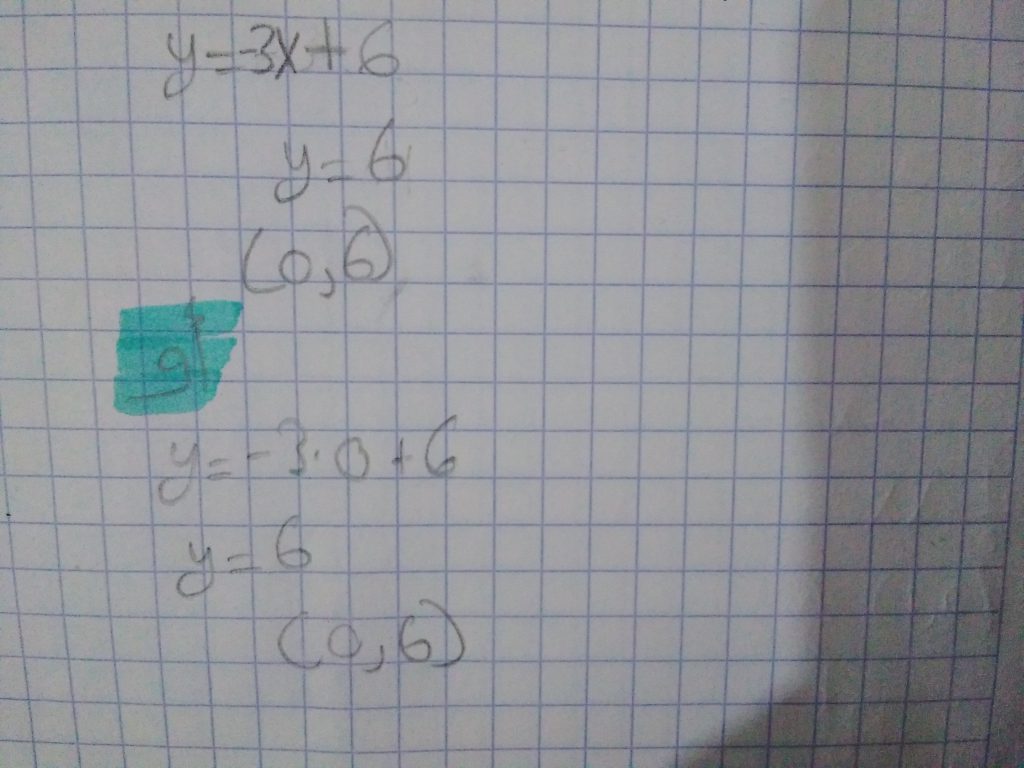 y=-3x+6
y=6
(0,6)
y=-3·0+6
y=6
(0,6)